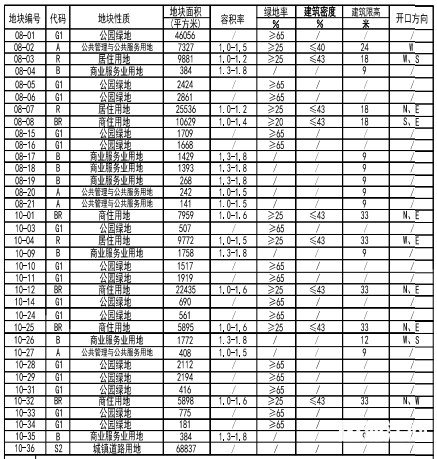 地块编号 代码 地块性质 地块面积(平方米) 容积率 绿地率% 建筑密度% 建筑限高米 开口方向
08-01 G1 公园绿地 46056 / ≥65 / / /
08-02 A 公共管理与公共服务用地 7327 1.0-1.5 ≥25 ≤40 24 W
08-03 R 居住用地 9881 1.0-1.2 ≥25 ≤43 18 W、S
08-04 B 商业服务业用地 384 1.3-1.8 / / 9 /
08-05 G1 公园绿地 2424 / ≥65 / / /
08-06 G1 公园绿地 2861 / ≥65 / / /
08-07 R 居住用地 25536 1.0-1.2 ≥25 ≤43 18 N、E
08-08 BR 商住用地 10629 1.0-1.4 ≥20 ≤43 18 S、E
08-15 G1 公园绿地 1709 / ≥65 / / /
08-16 G1 公园绿地 1668 / ≥65 / / /
08-17 B 商业服务业用地 1429 1.3-1.8 / / 9 /
08-18 B 商业服务业用地 1393 1.3-1.8 / / 9 /
08-19 B 商业服务业用地 268 1.3-1.8 / / 9 /
08-20 A 公共管理与公共服务用地 242 1.0-1.5 / / 9 /
08-21 A 公共管理与公共服务用地 141 1.0-1.5 / / 9 /
10-01 BR 商住用地 7959 1.0-1.6 ≥25 ≤43 33 N、E
10-03 G1 公园绿地 507 / ≥65 / / /
10-04 R 居住用地 9772 1.0-1.5 ≥25 ≤43 33 W、E
10-09 B 商业服务业用地 1758 1.3-1.8 / / 9 /
10-10 G1 公园绿地 1517 / ≥65 / / /
10-11 G1 公园绿地 1919 / ≥65 / / /
10-12 BR 商住用地 22435 1.0-1.6 ≥25 ≤43 33 N、E
10-14 G1 公园绿地 690 / ≥65 / / /
10-24 G1 公园绿地 561 / ≥65 / / /
10-25 BR 商住用地 5895 1.0-1.6 ≥25 ≤43 33 N、E
10-26 B 商业服务业用地 1772 1.3-1.8 / / 12 W、S
10-27 A 公共管理与公共服务用地 408 1.0-1.5 / / 9 /
10-28 G1 公园绿地 2112 / ≥65 / / /
10-29 G1 公园绿地 2194 / ≥65 / / /
10-31 G1 公园绿地 416 / ≥65 / / /
10-32 BR 商住用地 5898 1.0-1.6 ≥25 ≤43 33 N、W
10-33 G1 公园绿地 775 / ≥65 / / /
10-34 G1 公园绿地 181 / ≥65 / / /
10-35 B 商业服务业用地 384 1.3-1.8 / / 9 /
10-36 S2 城镇道路用地 68837 / / / / /